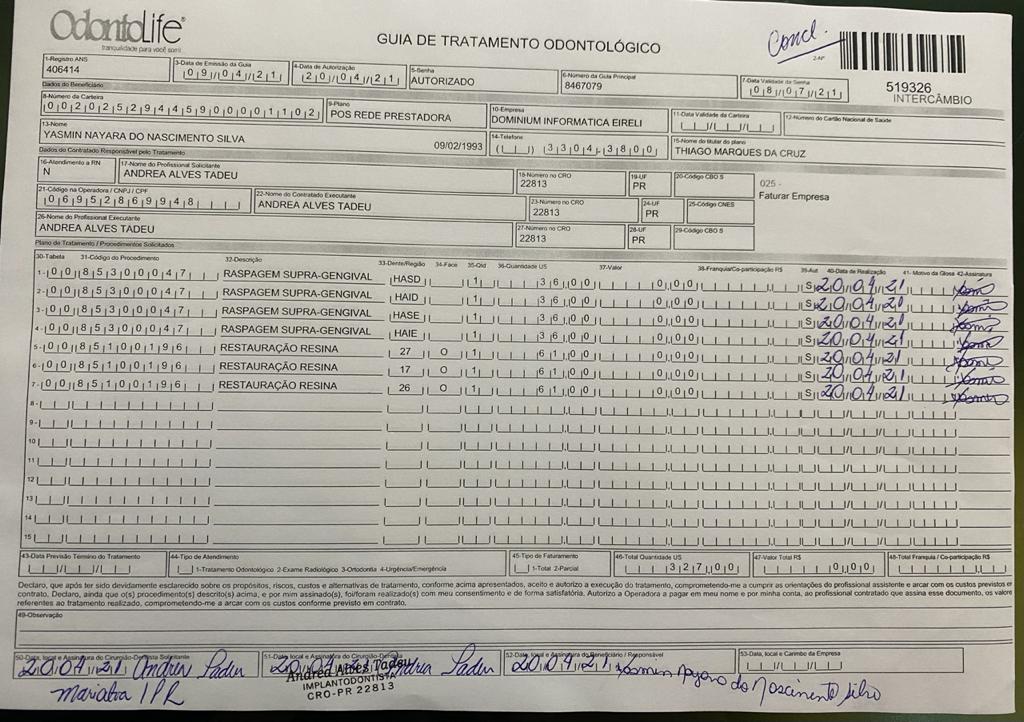 OdontoLife
tranquilidade para você sorrir
GUIA DE TRATAMENTO ODONTOLÓGICO
Concl.
2-Nº
519326
INTERCÂMBIO
1-Registro ANS 3-Data de Emissão da Guia 4-Data de Autorização 5-Senha 6-Número da Guia Principal 7-Data Validade da Senha
406414 09/04/21 20/04/21 AUTORIZADO 8467079 08/07/21
Dados do Beneficiário
8-Número da Carteira 9-Plano 10-Empresa 11-Data Validade da Carteira 12-Número do Cartão Nacional de Saúde
002025294459000001102 POS REDE PRESTADORA DOMINIUM INFORMATICA EIRELI
13-Nome 14-Telefone 15-Nome do titular do plano
YASMIN NAYARA DO NASCIMENTO SILVA 09/02/1993 ( ) 3304-3800 THIAGO MARQUES DA CRUZ
Dados do Contratado Responsável pelo Tratamento
16-Atendimento a RN 17-Nome do Profissional Solicitante 18-Número no CRO 19-UF 20-Código CBO S
N ANDREA ALVES TADEU 22813 PR
025 -
Faturar Empresa
21-Código na Operadora / CNPJ / CPF 22-Nome do Contratado Executante 23-Número no CRO 24-UF 25-Código CNES
06952869948 ANDREA ALVES TADEU 22813 PR
26-Nome do Profissional Executante 27-Número no CRO 28-UF 29-Código CBO S
ANDREA ALVES TADEU 22813 PR
Plano de Tratamento / Procedimentos Solicitados
30-Tabela 31-Código do Procedimento 32-Descrição 33-Dente/Região 34-Face 35-Qtd 36-Quantidade US 37-Valor 38-Franquia/Co-participação R$ 39-Aut 40-Data de Realização 41-Motivo da Glosa 42-Assinatura
1- 00 85300047 RASPAGEM SUPRA-GENGIVAL HASD 1 36,00 0,00 S 20/04/21
2- 00 85300047 RASPAGEM SUPRA-GENGIVAL HAID 1 36,00 0,00 S 20/04/21
3- 00 85300047 RASPAGEM SUPRA-GENGIVAL HASE 1 36,00 0,00 S 20/04/21
4- 00 85300047 RASPAGEM SUPRA-GENGIVAL HAIE 1 36,00 0,00 S 20/04/21
5- 00 85100196 RESTAURAÇÃO RESINA 27 O 1 61,00 0,00 S 20/04/21
6- 00 85100196 RESTAURAÇÃO RESINA 17 O 1 61,00 0,00 S 20/04/21
7- 00 85100196 RESTAURAÇÃO RESINA 26 O 1 61,00 0,00 S 20/04/21
8-
9-
10
11
12
13
14
15
43-Data Previsão Término do Tratamento 44-Tipo de Atendimento 45-Tipo de Faturamento 46-Total Quantidade US 47-Valor Total R$ 48-Total Franquia / Co-participação R$
1-Tratamento Odontológico 2-Exame Radiológico 3-Ortodontia 4-Urgência/Emergência 1-Total 2-Parcial 327,00 0,00
Declaro, que após ter sido devidamente esclarecido sobre os propósitos, riscos, custos e alternativas de tratamento, conforme acima apresentados, aceito e autorizo a execução do tratamento, comprometendo-me a cumprir as orientações do profissional assistente e arcar com os custos previstos em
contrato. Declaro, ainda que o(s) procedimento(s) descrito(s) acima, e por mim assinado(s), foi/foram realizado(s) com meu consentimento e de forma satisfatória. Autorizo a Operadora a pagar em meu nome e por minha conta, ao profissional contratado que assina esse documento, os valores
referentes ao tratamento realizado, comprometendo-me a arcar com os custos conforme previsto em contrato.
49-Observação
50-Data, local e Assinatura do Cirurgião-Dentista Solicitante 51-Data, local e Assinatura do Cirurgião-Dentista 52-Data, local e Assinatura do Beneficiário / Responsável 53-Data, local e Carimbo da Empresa
20/04/21 Andrea Tadeu 20/04/21 Andrea Tadeu 20/04/21 Yasmin Nayara do Nascimento Silva
Andrea Alves Tadeu
IMPLANTODONTISTA
CRO-PR 22813
Marialva / PR